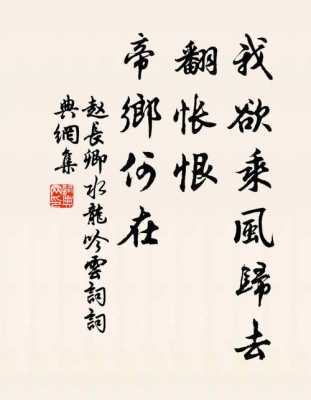 我欲乘風歸去
翻悵恨
帝鄉何在
赵長卿水龍吟雲詞詞
典網集